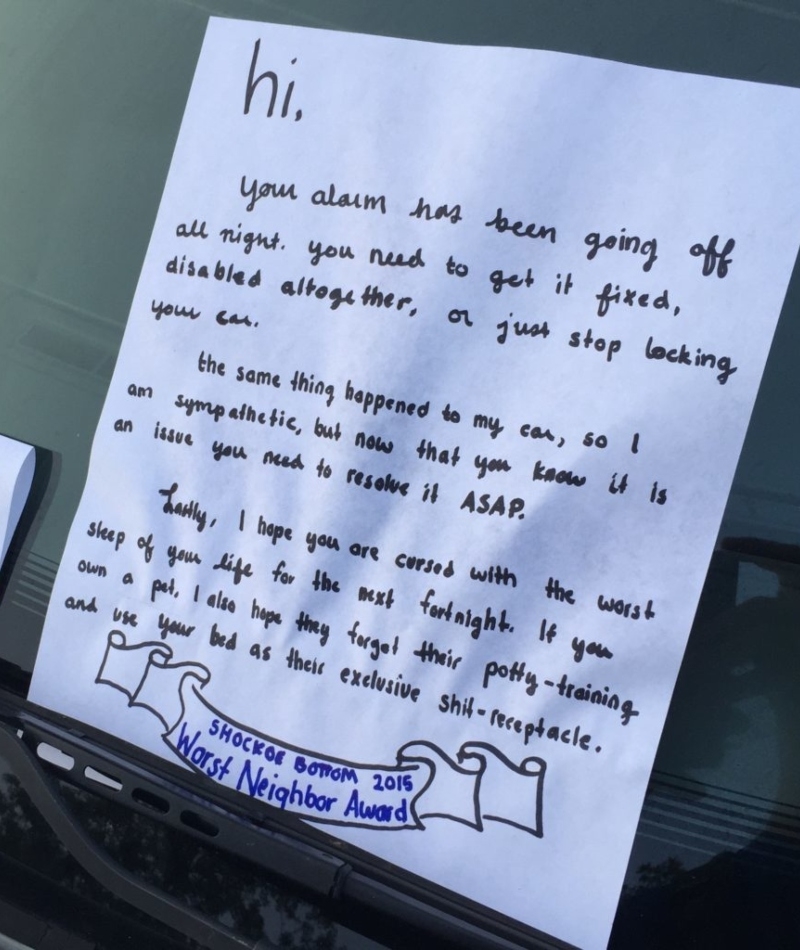 hi,
Your alarm has been going off
all night. you need to get it fixed,
disabled altogether, or just stop locking
your car.
the same thing happened to my car, so I
am sympathetic, but now that you know it is
an issue you need to resolve it ASAP.
Lastly, I hope you are cursed with the worst
sleep of your life for the next fortnight. If you
own a pet, I also hope they forget their potty-training
and use your bed as their exclusive shit-receptacle.
SHOCKOE BOTTOM 2015
Worst Neighbor Award